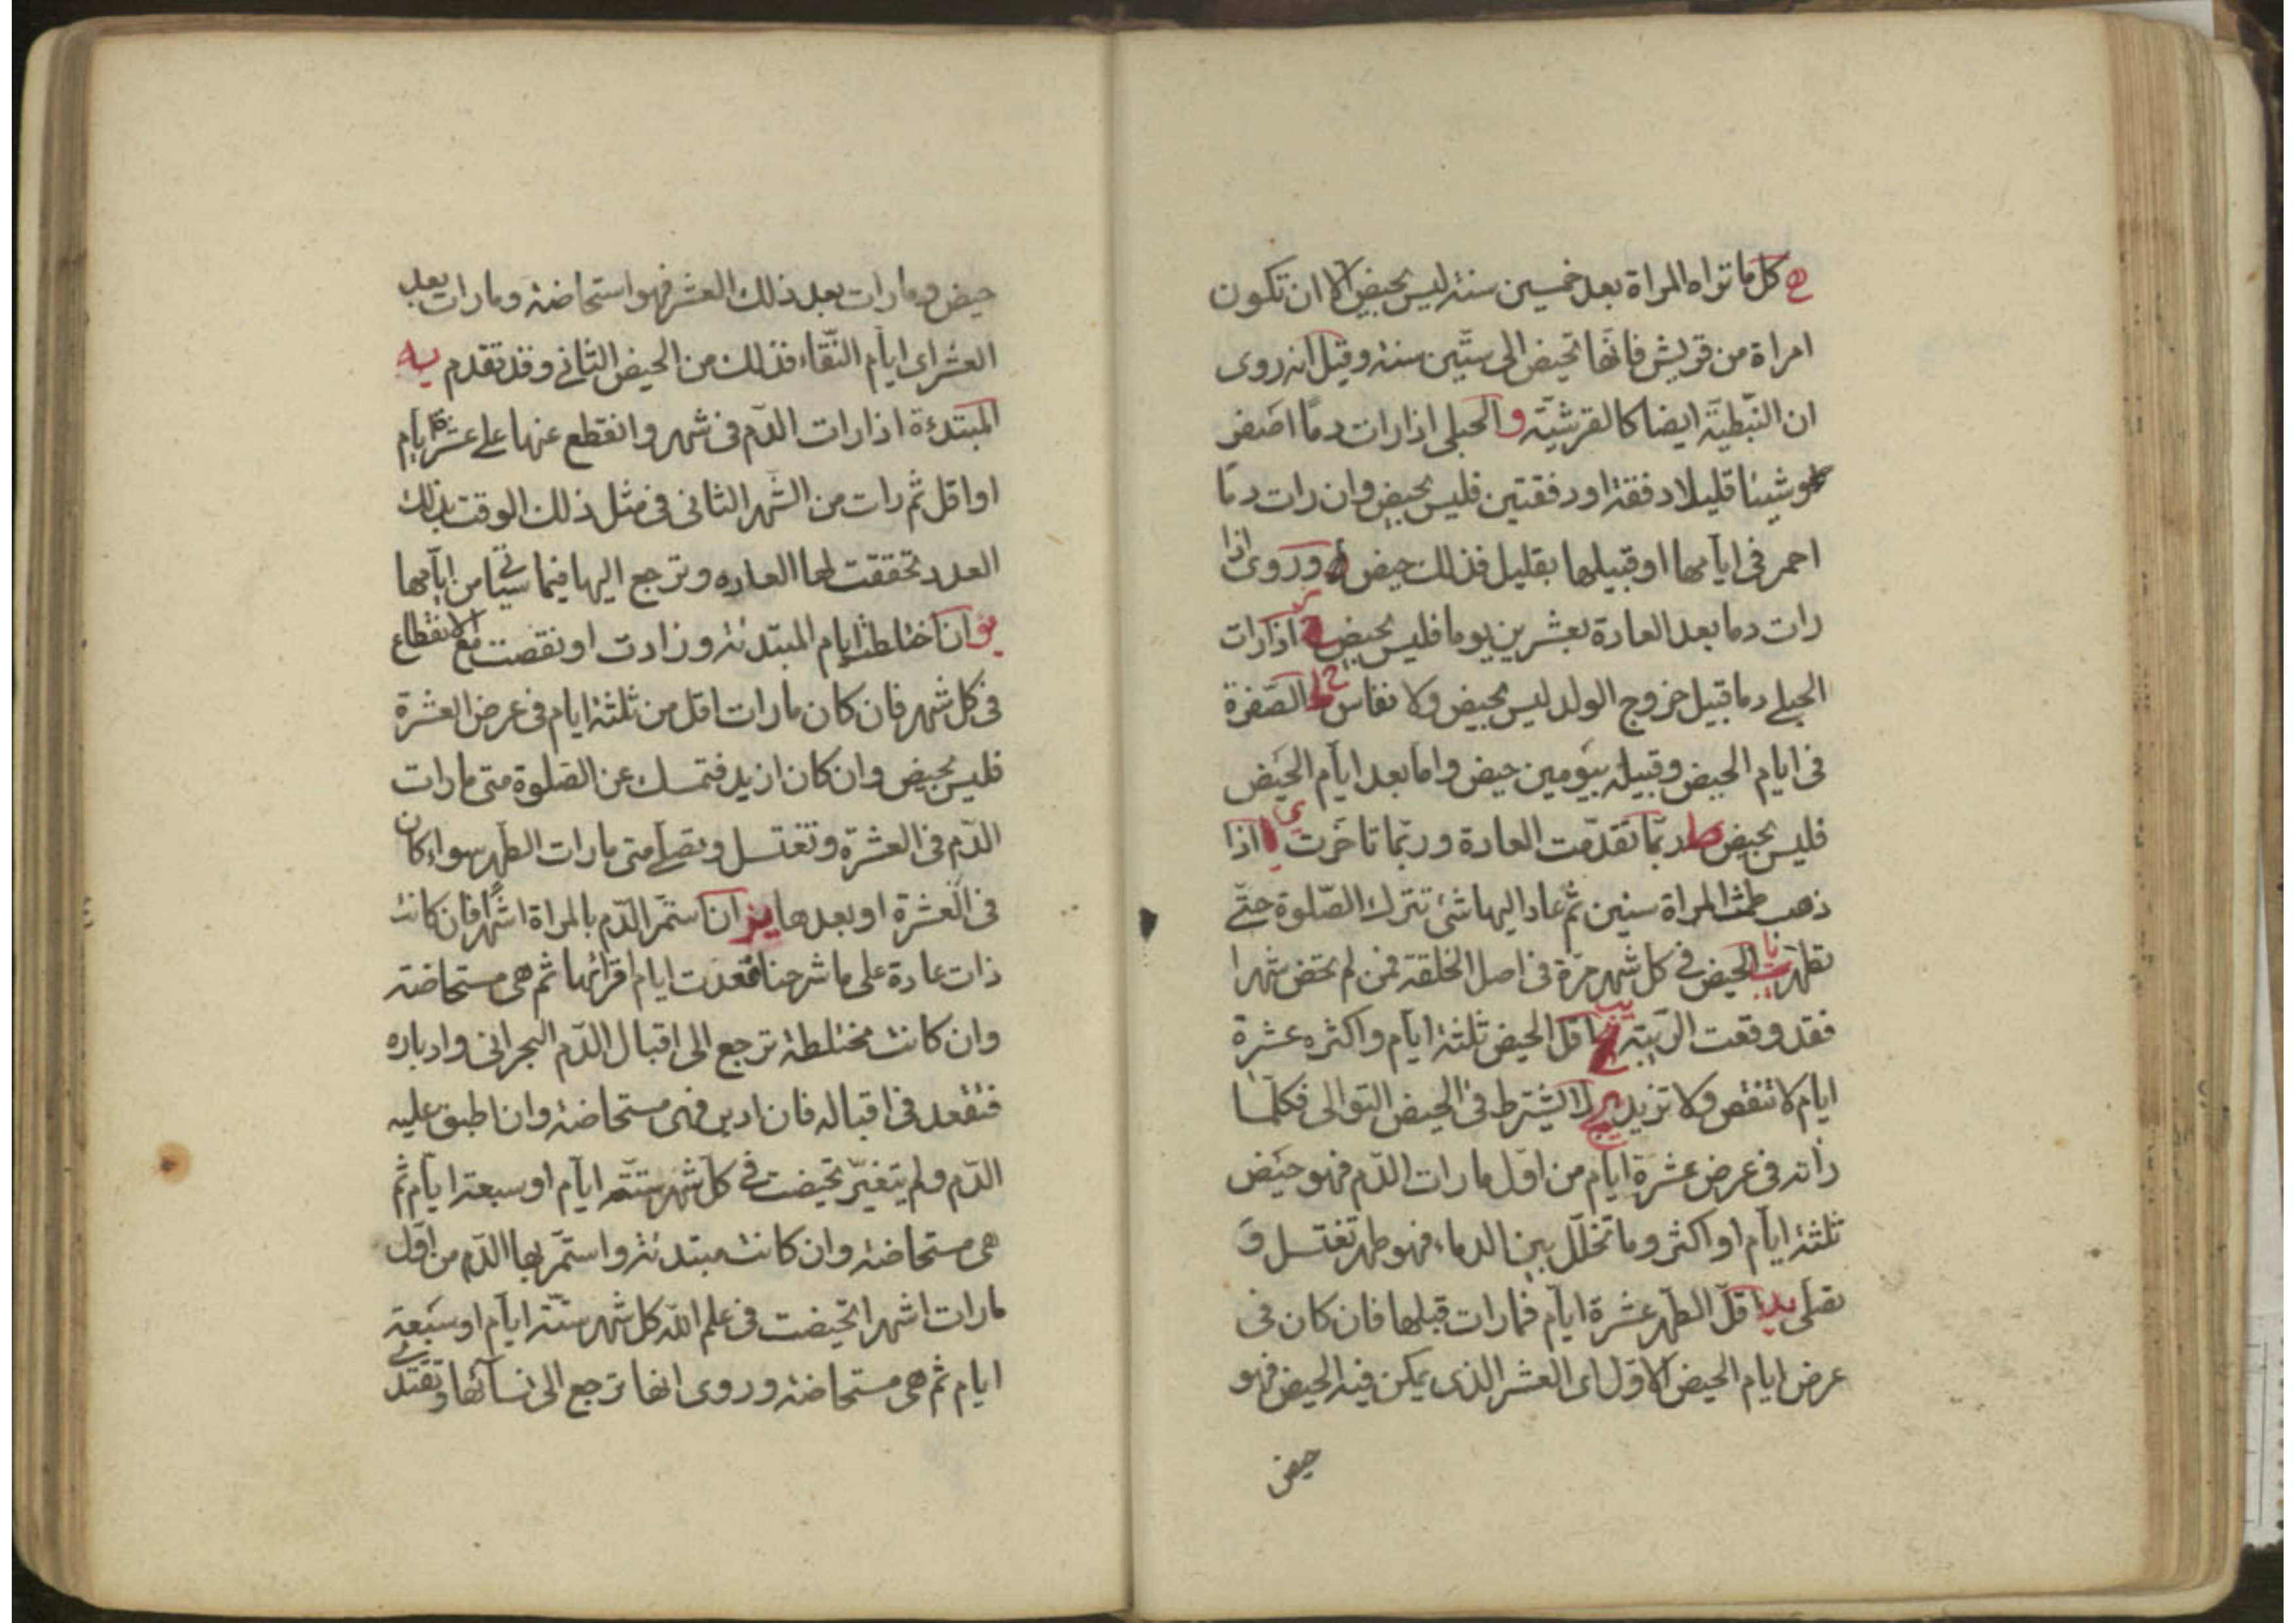 ه كل ما تراه المراة بعد خمسين سنة ليس بحيض الا ان تكون
امراة من قريش فانها تحيض الى ستين سنة وقيل انه روى
ان النبطية ايضا كالقرشية و الحبلى اذا رات دما اصفر
وشيئا قليلا دفقة او دفقتين فليس بحيض وان رات دما
احمر فى ايامها او قبيلها بقليل فذلك حيض وروى اذا
رات دما بعد العادة بعشرين يوما فليس بحيض ز اذا رات
الحبلى دما قبيل خروج الولد ليس بحيض ولا نفاس ح الصفرة
فى ايام الحيض وقبيله بيومين حيض واما بعد ايام الحيض
فليس بحيض ط ربما تقدمت العادة وربما تاخرت ى اذا
ذهب طمث المراة سنين ثم عاد اليها شئ تترك الصلوة حتى
تطهر يا الحيض فى كل شهر مرة فى اصل الخلقة فمن لم تحض شهرا
فقد وقعت الريبة يب اقل الحيض ثلثة ايام واكثره عشرة
ايام لا تنقص ولا تزيد يج لا يشترط فى الحيض التوالى فكلما
راته فى عرض عشرة ايام من اول ما رات الدم فهو حيض
ثلثة ايام او اكثر وما تخلل بين الدماء فهو طهر تغتسل و
تصلى يد اقل الطهر عشرة ايام فما رات قبلها فان كان فى
عرض ايام الحيض الاول اى العشر الذى يمكن فيه الحيض فهو
حيض
حيض وما رات بعد ذلك العشر فهو استحاضة وما رات بعد
العشر اى ايام النقاء فذلك من الحيض الثانى وقد تقدم يه
المبتدءة اذا رات الدم فى شهر وانقطع عنها على عشرة ايام
او اقل ثم رات من الشهر الثانى فى مثل ذلك الوقت بذلك
العدد تحققت لها العادة وترجع اليها فيما سياتى من ايامها
يو ان اختلطت ايام المبتدئة وزادت او نقصت مع الانقطاع
فى كل شهر فان كان ما رات اقل من ثلثة ايام فى عرض العشرة
فليس بحيض وان كان ازيد فتمسك عن الصلوة متى ما رات
الدم فى العشرة وتغتسل وتصلى متى ما رات الطهر سواء كان
فى العشرة او بعدها يز ان استمر الدم بالمراة اشهرا فان كانت
ذات عادة على ما شرحنا قعدت ايام اقرائها ثم هى مستحاضة
وان كانت مختلطة ترجع الى اقبال الدم البحرانى وادباره
فتقعد فى اقباله فان ادبر فهى مستحاضة وان اطبق عليه
الدم ولم يتغير تحيضت فى كل شهر ستة ايام او سبعة ايام ثم
هى مستحاضة وان كانت مبتدئة واستمر بها الدم من اول
ما رات اشهرا تحيضت فى علم الله كل شهر ستة ايام او سبعة
ايام ثم هى مستحاضة وروى انها ترجع الى نسائها وتقتدى